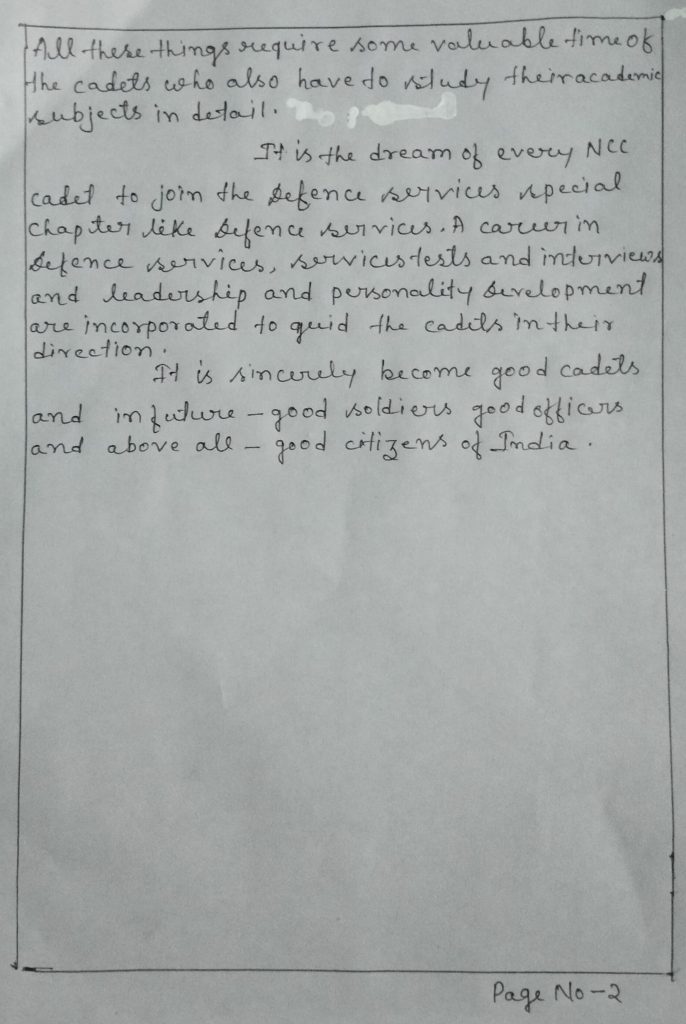 All these things require some valuable time of
the cadets who also have to study their academic
subjects in detail.
It is the dream of every NCC
cadet to join the defence services special
chapter like defence services. A career in
defence services, services tests and interviews
and leadership and personality development
are incorporated to guid the cadets in their
direction.
It is sincerely become good cadets
and in future - good soldiers good officers
and above all - good citizens of India.
Page No-2